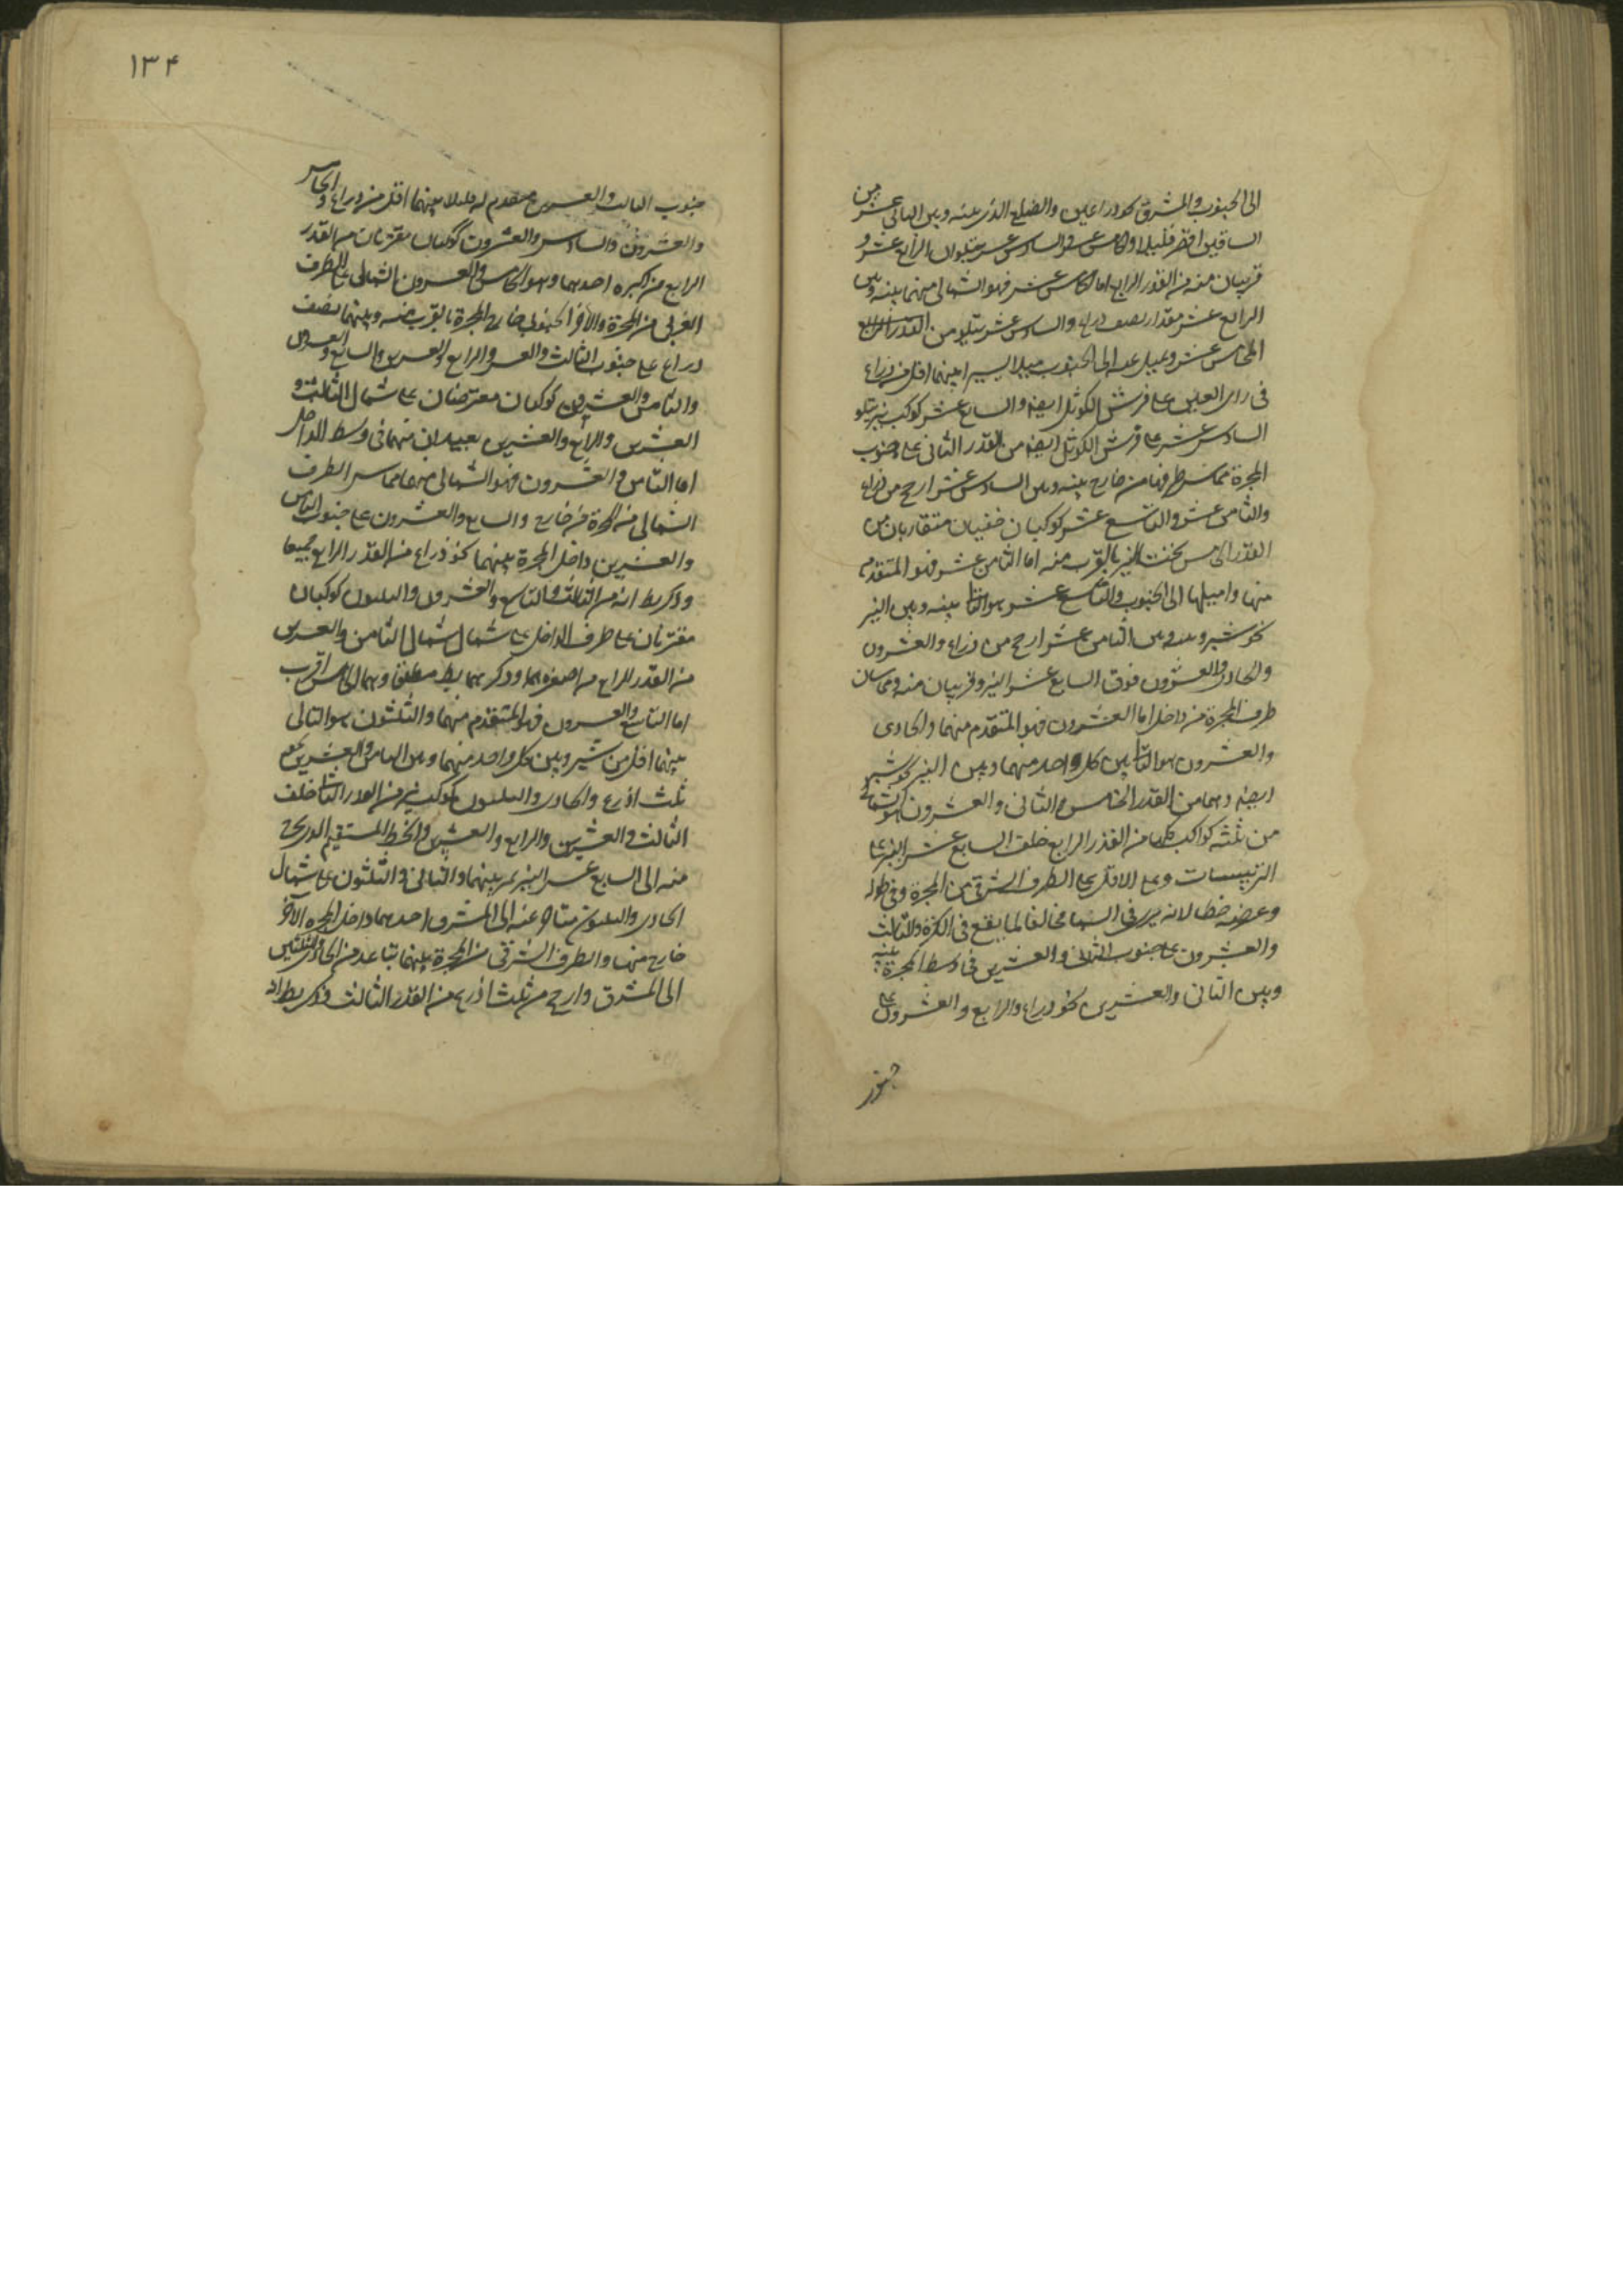 الى الجنوب والمشرق نحو ذراعين والضلع الذى بينه وبين الثانى عشر من
الساقين اقصر قليلا والخامس عشر والسادس عشر يتلوان الرابع عشر و
قريبان منه من القدر الرابع اما الخامس عشر فهو الشمالى منهما بينه وبين
الرابع عشر مقدار نصف ذراع والسادس عشر يتلو من القدر الرابع
الخامس عشر ويميل عنه الى الجنوب ميلا يسيرا بينهما اقل من ذراع
فى راى العين على فرش الكوثل ايضا والسابع عشر كوكب نير يتلو
السادس عشر على فرش الكوثل ايضا من القدر الثانى على جنوب
المجرة مماس طرفها من خارج بينه وبين السادس عشر ارجح من ذراع
والثامن عشر والتاسع عشر كوكبان خفيان متقاربان من
القدر الخامس تحت النير بالقرب منه اما الثامن عشر فهو المتقدم
منهما واميلهما الى الجنوب والتاسع عشر هو التالى بينه وبين النير
نحو شبر وبينه وبين الثامن عشر ارجح من ذراع والعشرون
والحادى والعشرون فوق السابع عشر النير وقريبان منه ومماسان
طرف المجرة من داخل اما العشرون فهو المتقدم منهما والحادى
والعشرون هو التالى بين كل واحد منهما وبين النير نحو شبر
ايضا وهما من القدر الخامس والثانى والعشرون هو الشمالى
من ثلثة كواكب كلها من القدر الرابع خلف السابع عشر النير على
الترسيسات وعلى الاقل على الطرف الشرقى من المجرة وفى طوله
وعرضه خطا لانه يرى فى السما مخالفا لما يقع فى الكرة والثالث
والعشرون على جنوب الثانى والعشرين فى وسط المجرة بينه
وبين الثانى والعشرين نحو ذراع والرابع والعشرون على
جنوب
١٣۴
جنوب الثالث والعشرين متقدم له قليلا بينهما اقل من ذراع والخامس
والعشرون والسادس والعشرون كوكبان مقترنان من القدر
الرابع من اكبره احدهما وهو الخامس والعشرون الشمالى على الطرف
الغربى من المجرة والاخر الجنوبى خارج المجرة بالقرب منه وبينهما نصف
ذراع على جنوب الثالث والعشرين والرابع والعشرين والسابع والعشرون
والثامن والعشرون كوكبان معترضان على شمال الثالث و
العشرين والرابع والعشرين بعيدان منهما فى وسط الداخل
اما الثامن والعشرون فهو الشمالى منهما مماس الطرف
الشمالى من المجرة من خارج والسابع والعشرون على جنوب الثامن
والعشرين داخل المجرة بينهما نحو ذراع من القدر الرابع جميعا
وذكر بط انه من الثالث والتاسع والعشرون والثلثون كوكبان
مقترنان على طرف الداخل على شمال شمال الثامن والعشرين
من القدر الرابع من اصغره وذكرهما بط مطلقا وهما الى الخامس اقرب
اما التاسع والعشرون فهو المتقدم منهما والثلثون هو التالى
بينهما اقل من شبر وبين كل واحد منهما وبين الثامن والعشرين نحو
ثلث اذرع والحادى والثلثون كوكب نير من القدر الثانى خلف
الثالث والعشرين والرابع والعشرين والخط المستقيم الذى يخرج
منه الى السابع عشر النير يمر بينهما والثانى والثلثون على شمال
الحادى والثلثون متاخر عنه الى المشرق احدهما داخل المجرة والاخر
خارج منها والطرف الشرقى من المجرة بينهما يتباعد من الحادى والثلثين
الى المشرق وارجح من ثلث اذرع من القدر الثالث وذكر بط انه